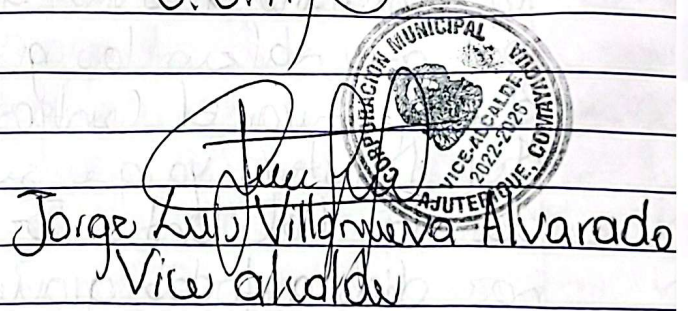 CORPORACION MUNICIPAL
VICE-ALCALDE
2022-2026
AJUTERIQUE, COMAYAGUA
Jorge Luis Villanueva Alvarado
Vice alcalde